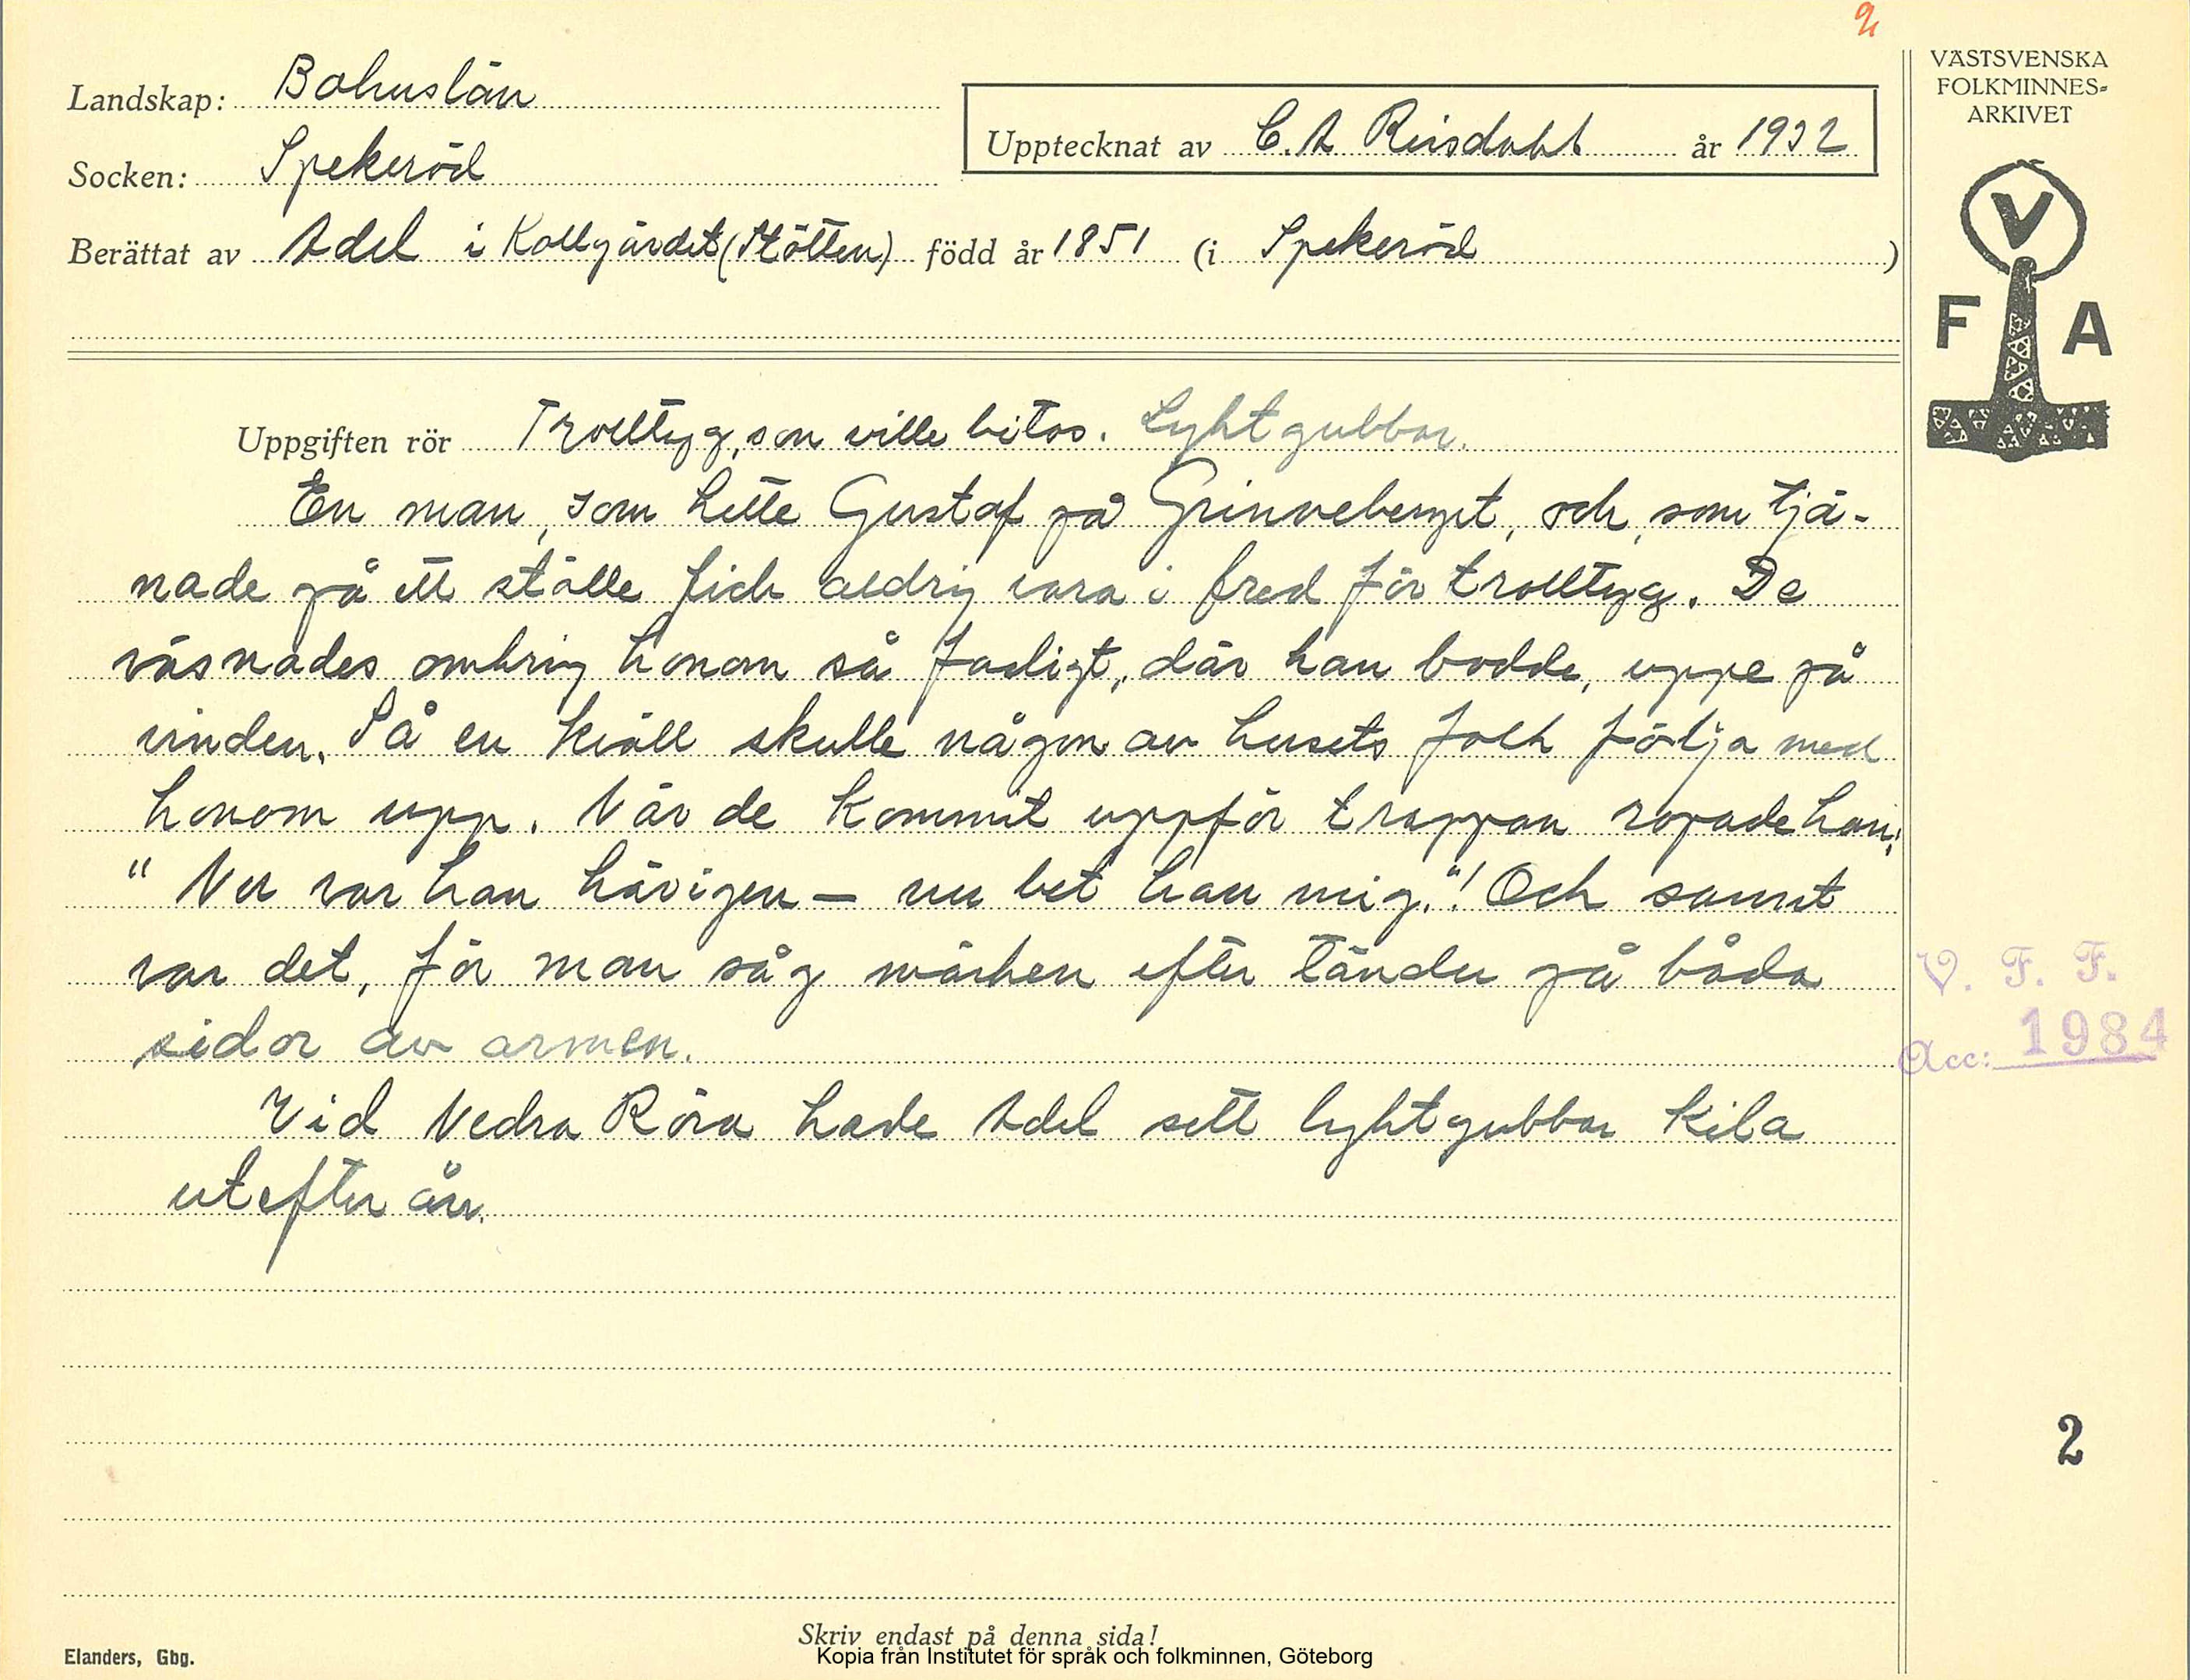 VÄSTSVENSKA
FOLKMINNES=
ARKIVET
Landskap: Bohuslän
Upptecknat av C.A Reisdahl år 1932
Socken: Spekeröd
Berättat av Adel i Kollgärdet (Stötten) född år 1851 (i Spekeröd)
V
F A
Uppgiften rör Trolltyg, som ville bitas. Lyktgubbar.
En man, som hette Gustaf på Grinneberget, och, som tjä-
nade på ett ställe fick aldrig vara i fred för trolltyg. De
väsnades omkring honom så fasligt, där han bodde, uppe på
vinden. Så en kväll skulle någon av husets folk följa med
honom upp. När de kommit uppför trappan ropade han:
"Nu var han härigen – nu bet han mig."! Och sannt
var det, för man såg märken efter tänder på båda
sidor av armen.
Vid Nedra Röra hade Adel sett lyktgubbar kila
utefter ån.
V. F. F.
Acc: 1984
2
Skriv endast på denna sida!
Elanders, Gbg.
Kopia från Institutet för språk och folkminnen, Göteborg